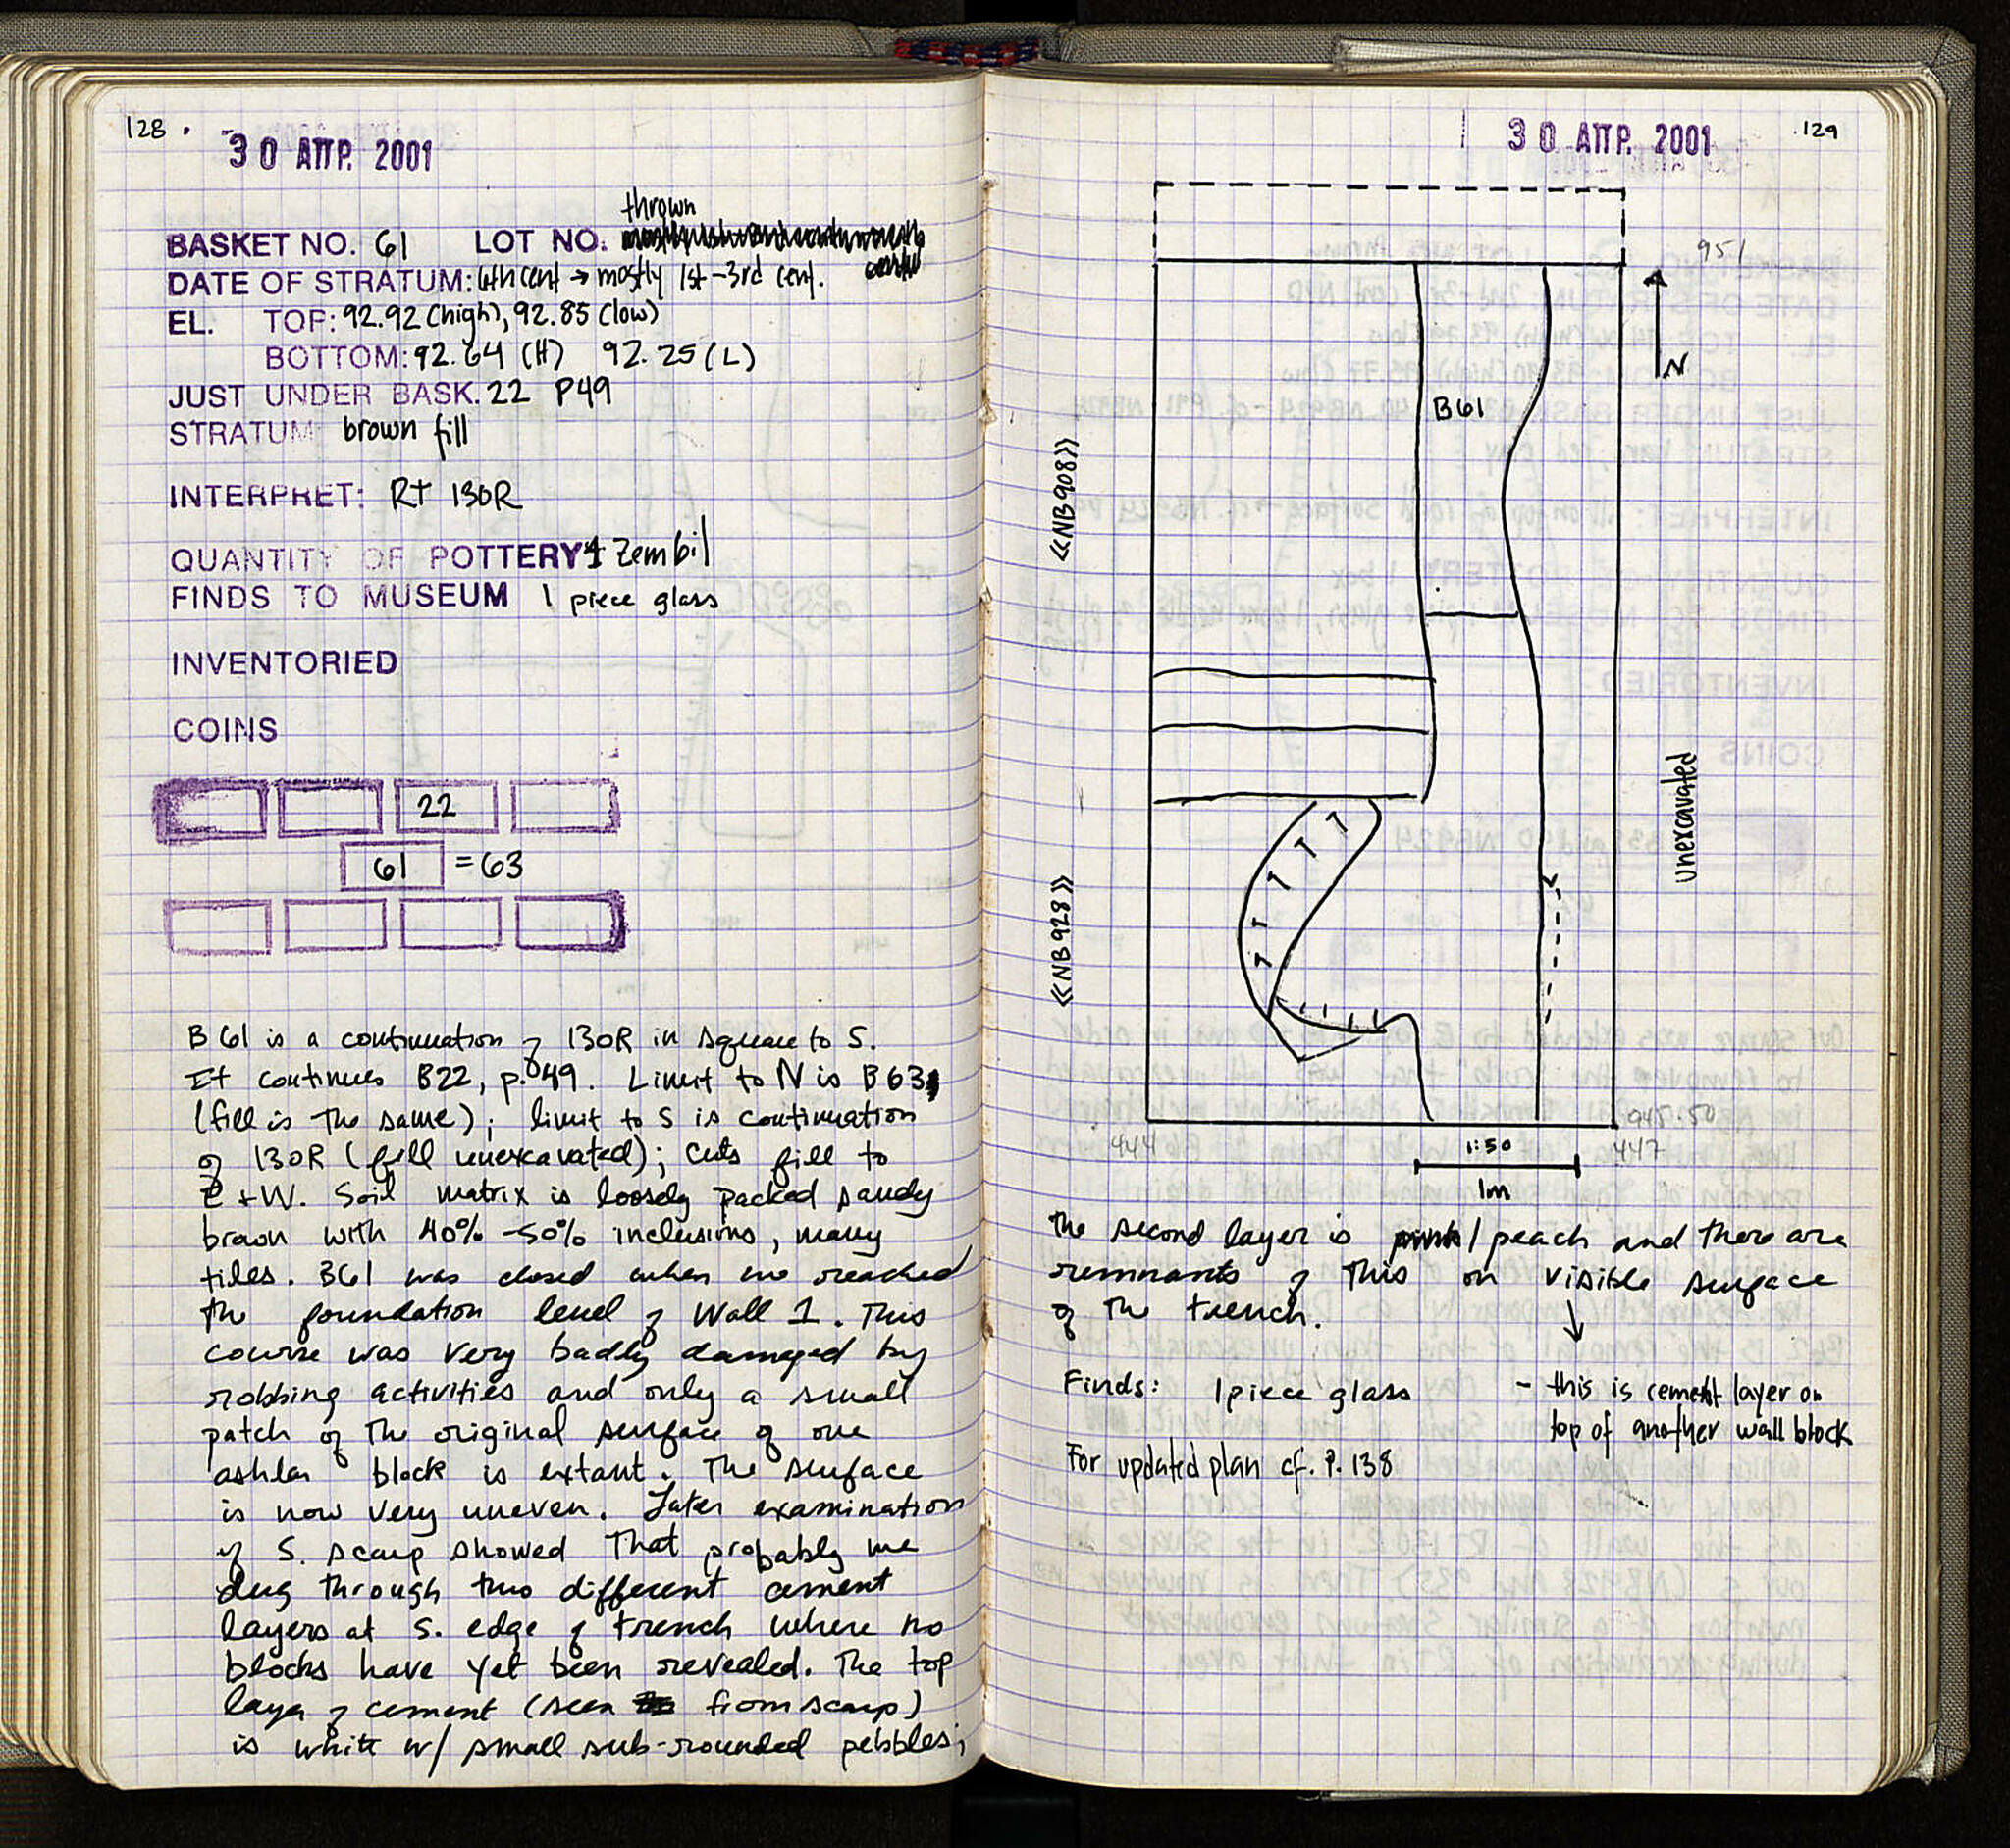 128 .
30 ΑΠΡ. 2001
thrown
BASKET NO. 61 LOT NO.
DATE OF STRATUM: 6th cent → mostly 1st-3rd cent.
EL. TOP: 92.92 (high), 92.85 (low)
BOTTOM: 92.64 (H) 92.25 (L)
JUST UNDER BASK. 22 P49
STRATUM brown fill
INTERPRET: RT 130R
QUANTITY OF POTTERY 1 Zembil
FINDS TO MUSEUM 1 piece glass
INVENTORIED
COINS
22
61 = 63
B 61 is a continuation of 130R in square to S.
It continues B22, p. 49. Limit to N is B63
(fill is the same); limit to S is continuation
of 130R (fill unexcavated); cuts fill to
E + W. Soil matrix is loosely packed sandy
brown with 40% -50% inclusions, many
tiles. B61 was closed when we reached
the foundation level of Wall 1. This
course was very badly damaged by
robbing activities and only a small
patch of the original surface of one
ashlar block is extant. The surface
is now very uneven. Later examination
of S. scarp showed that probably we
dug through two different cement
layers at S. edge of trench where no
blocks have yet been revealed. The top
layer of cement (seen from scarp)
is white w/ small sub-rounded pebbles;
30 ΑΠΡ. 2001
.129
951
N
B61
«NB908»
unexcavated
«NB928»
945.50
444
1:50
447
1m
the second layer is pink/peach and there are
remnants of this on visible surface
of the trench.
Finds: 1 piece glass
- this is cement layer on
top of another wall block
For updated plan cf. P. 138